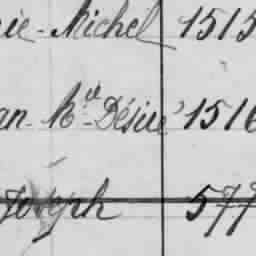 rie-Michel 1515
an-Md-Désiré 1516
Joseph 577